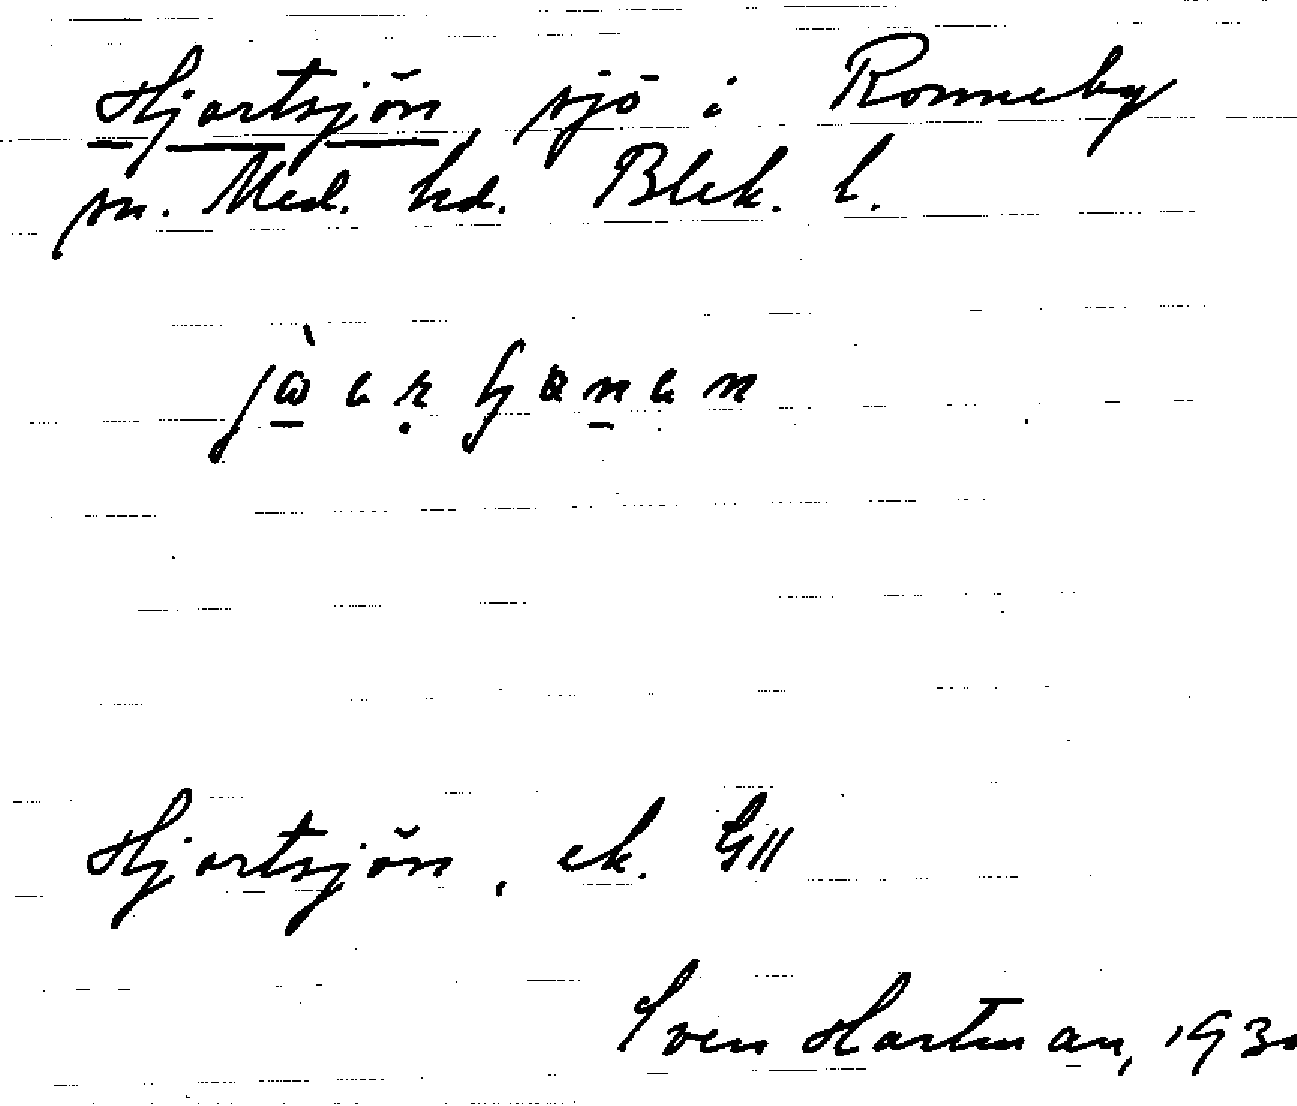 Hjortsjön, sjö i Ronneby
sn. Med. hd. Blek. l.
Hjortsjön, ek. GII
Sven Hartman, 193